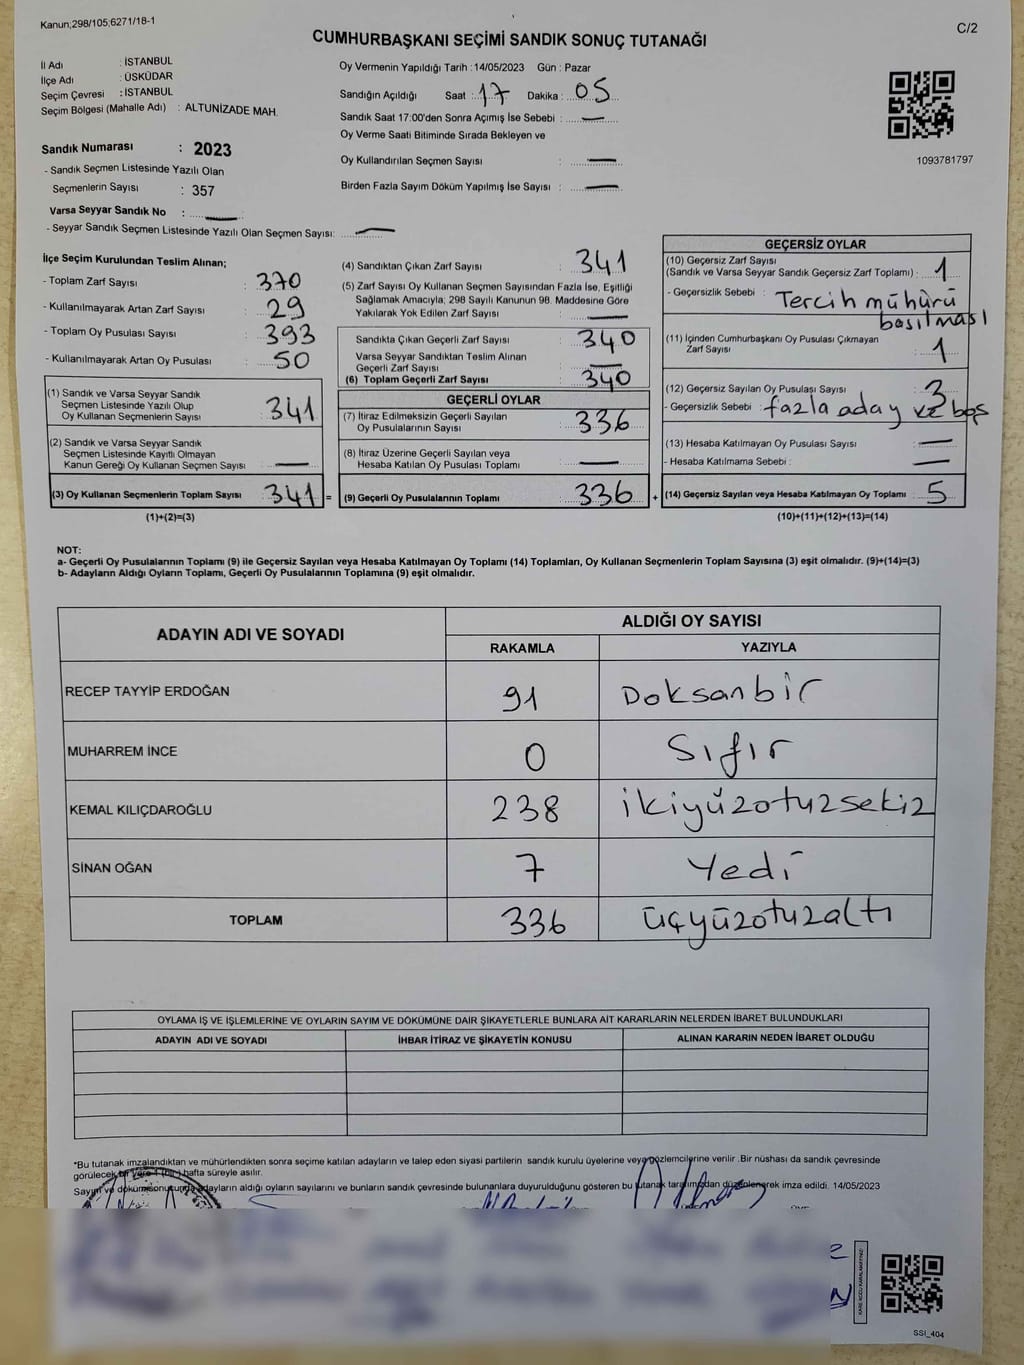 Kanun;298/105;6271/18-1
C/2
CUMHURBAŞKANI SEÇİMİ SANDIK SONUÇ TUTANAĞI
İl Adı : İSTANBUL
İlçe Adı : ÜSKÜDAR
Seçim Çevresi : İSTANBUL
Seçim Bölgesi (Mahalle Adı) : ALTUNİZADE MAH.
Sandık Numarası : 2023
- Sandık Seçmen Listesinde Yazılı Olan
Seçmenlerin Sayısı : 357
Varsa Seyyar Sandık No : —
- Seyyar Sandık Seçmen Listesinde Yazılı Olan Seçmen Sayısı: —
Oy Vermenin Yapıldığı Tarih : 14/05/2023 Gün : Pazar
Sandığın Açıldığı Saat : 17 Dakika : 05
Sandık Saat 17:00'den Sonra Açımış İse Sebebi : —
Oy Verme Saati Bitiminde Sırada Bekleyen ve
Oy Kullandırılan Seçmen Sayısı : —
Birden Fazla Sayım Döküm Yapılmış İse Sayısı : —
1093781797
İlçe Seçim Kurulundan Teslim Alınan;
- Toplam Zarf Sayısı : 370
- Kullanılmayarak Artan Zarf Sayısı : 29
- Toplam Oy Pusulası Sayısı : 393
- Kullanılmayarak Artan Oy Pusulası : 50
(1) Sandık ve Varsa Seyyar Sandık
Seçmen Listesinde Yazılı Olup
Oy Kullanan Seçmenlerin Sayısı : 341
(2) Sandık ve Varsa Seyyar Sandık
Seçmen Listesinde Kayıtlı Olmayan
Kanun Gereği Oy Kullanan Seçmen Sayısı : —
(3) Oy Kullanan Seçmenlerin Toplam Sayısı : 341 =
(1)+(2)=(3)
(4) Sandıktan Çıkan Zarf Sayısı : 341
(5) Zarf Sayısı Oy Kullanan Seçmen Sayısından Fazla İse, Eşitliği
Sağlamak Amacıyla; 298 Sayılı Kanunun 98. Maddesine Göre
Yakılarak Yok Edilen Zarf Sayısı : —
Sandıkta Çıkan Geçerli Zarf Sayısı : 340
Varsa Seyyar Sandıktan Teslim Alınan
Geçerli Zarf Sayısı : —
(6) Toplam Geçerli Zarf Sayısı : 340
GEÇERLİ OYLAR
(7) İtiraz Edilmeksizin Geçerli Sayılan
Oy Pusulalarının Sayısı : 336
(8) İtiraz Üzerine Geçerli Sayılan veya
Hesaba Katılan Oy Pusulası Toplamı : —
(9) Geçerli Oy Pusulalarının Toplamı : 336 +
GEÇERSİZ OYLAR
(10) Geçersiz Zarf Sayısı
(Sandık ve Varsa Seyyar Sandık Geçersiz Zarf Toplamı) : 1
- Geçersizlik Sebebi : Tercih mühürü
basılması
(11) İçinden Cumhurbaşkanı Oy Pusulası Çıkmayan
Zarf Sayısı : 1
(12) Geçersiz Sayılan Oy Pusulası Sayısı : 3
- Geçersizlik Sebebi : fazla aday ve boş
(13) Hesaba Katılmayan Oy Pusulası Sayısı : —
- Hesaba Katılmama Sebebi : —
(14) Geçersiz Sayılan veya Hesaba Katılmayan Oy Toplamı : 5
(10)+(11)+(12)+(13)=(14)
NOT:
a- Geçerli Oy Pusulalarının Toplamı (9) ile Geçersiz Sayılan veya Hesaba Katılmayan Oy Toplamı (14) Toplamları, Oy Kullanan Seçmenlerin Toplam Sayısına (3) eşit olmalıdır. (9)+(14)=(3)
b- Adayların Aldığı Oyların Toplamı, Geçerli Oy Pusulalarının Toplamına (9) eşit olmalıdır.
ADAYIN ADI VE SOYADI
ALDIĞI OY SAYISI
RAKAMLA YAZIYLA
RECEP TAYYİP ERDOĞAN 91 Doksanbir
MUHARREM İNCE 0 Sıfır
KEMAL KILIÇDAROĞLU 238 ikiyüzotuzsekiz
SİNAN OĞAN 7 Yedi
TOPLAM 336 üçyüzotuzaltı
OYLAMA İŞ VE İŞLEMLERİNE VE OYLARIN SAYIM VE DÖKÜMÜNE DAİR ŞİKAYETLERLE BUNLARA AİT KARARLARIN NELERDEN İBARET BULUNDUKLARI
ADAYIN ADI VE SOYADI İHBAR İTİRAZ VE ŞİKAYETİN KONUSU ALINAN KARARIN NEDEN İBARET OLDUĞU
*Bu tutanak imzalandıktan ve mühürlendikten sonra seçime katılan adayların ve talep eden siyasi partilerin sandık kurulu üyelerine veya gözlemcilerine verilir .Bir nüshası da sandık çevresinde
görülecek bir yere 1 (bir) hafta süreyle asılır.
Sayım ve döküm sonucunda adayların aldığı oyların sayılarını ve bunların sandık çevresinde bulunanlara duyurulduğunu gösteren bu tutanak tarafımızdan düzenlenerek imza edildi. 14/05/2023
SSI_404